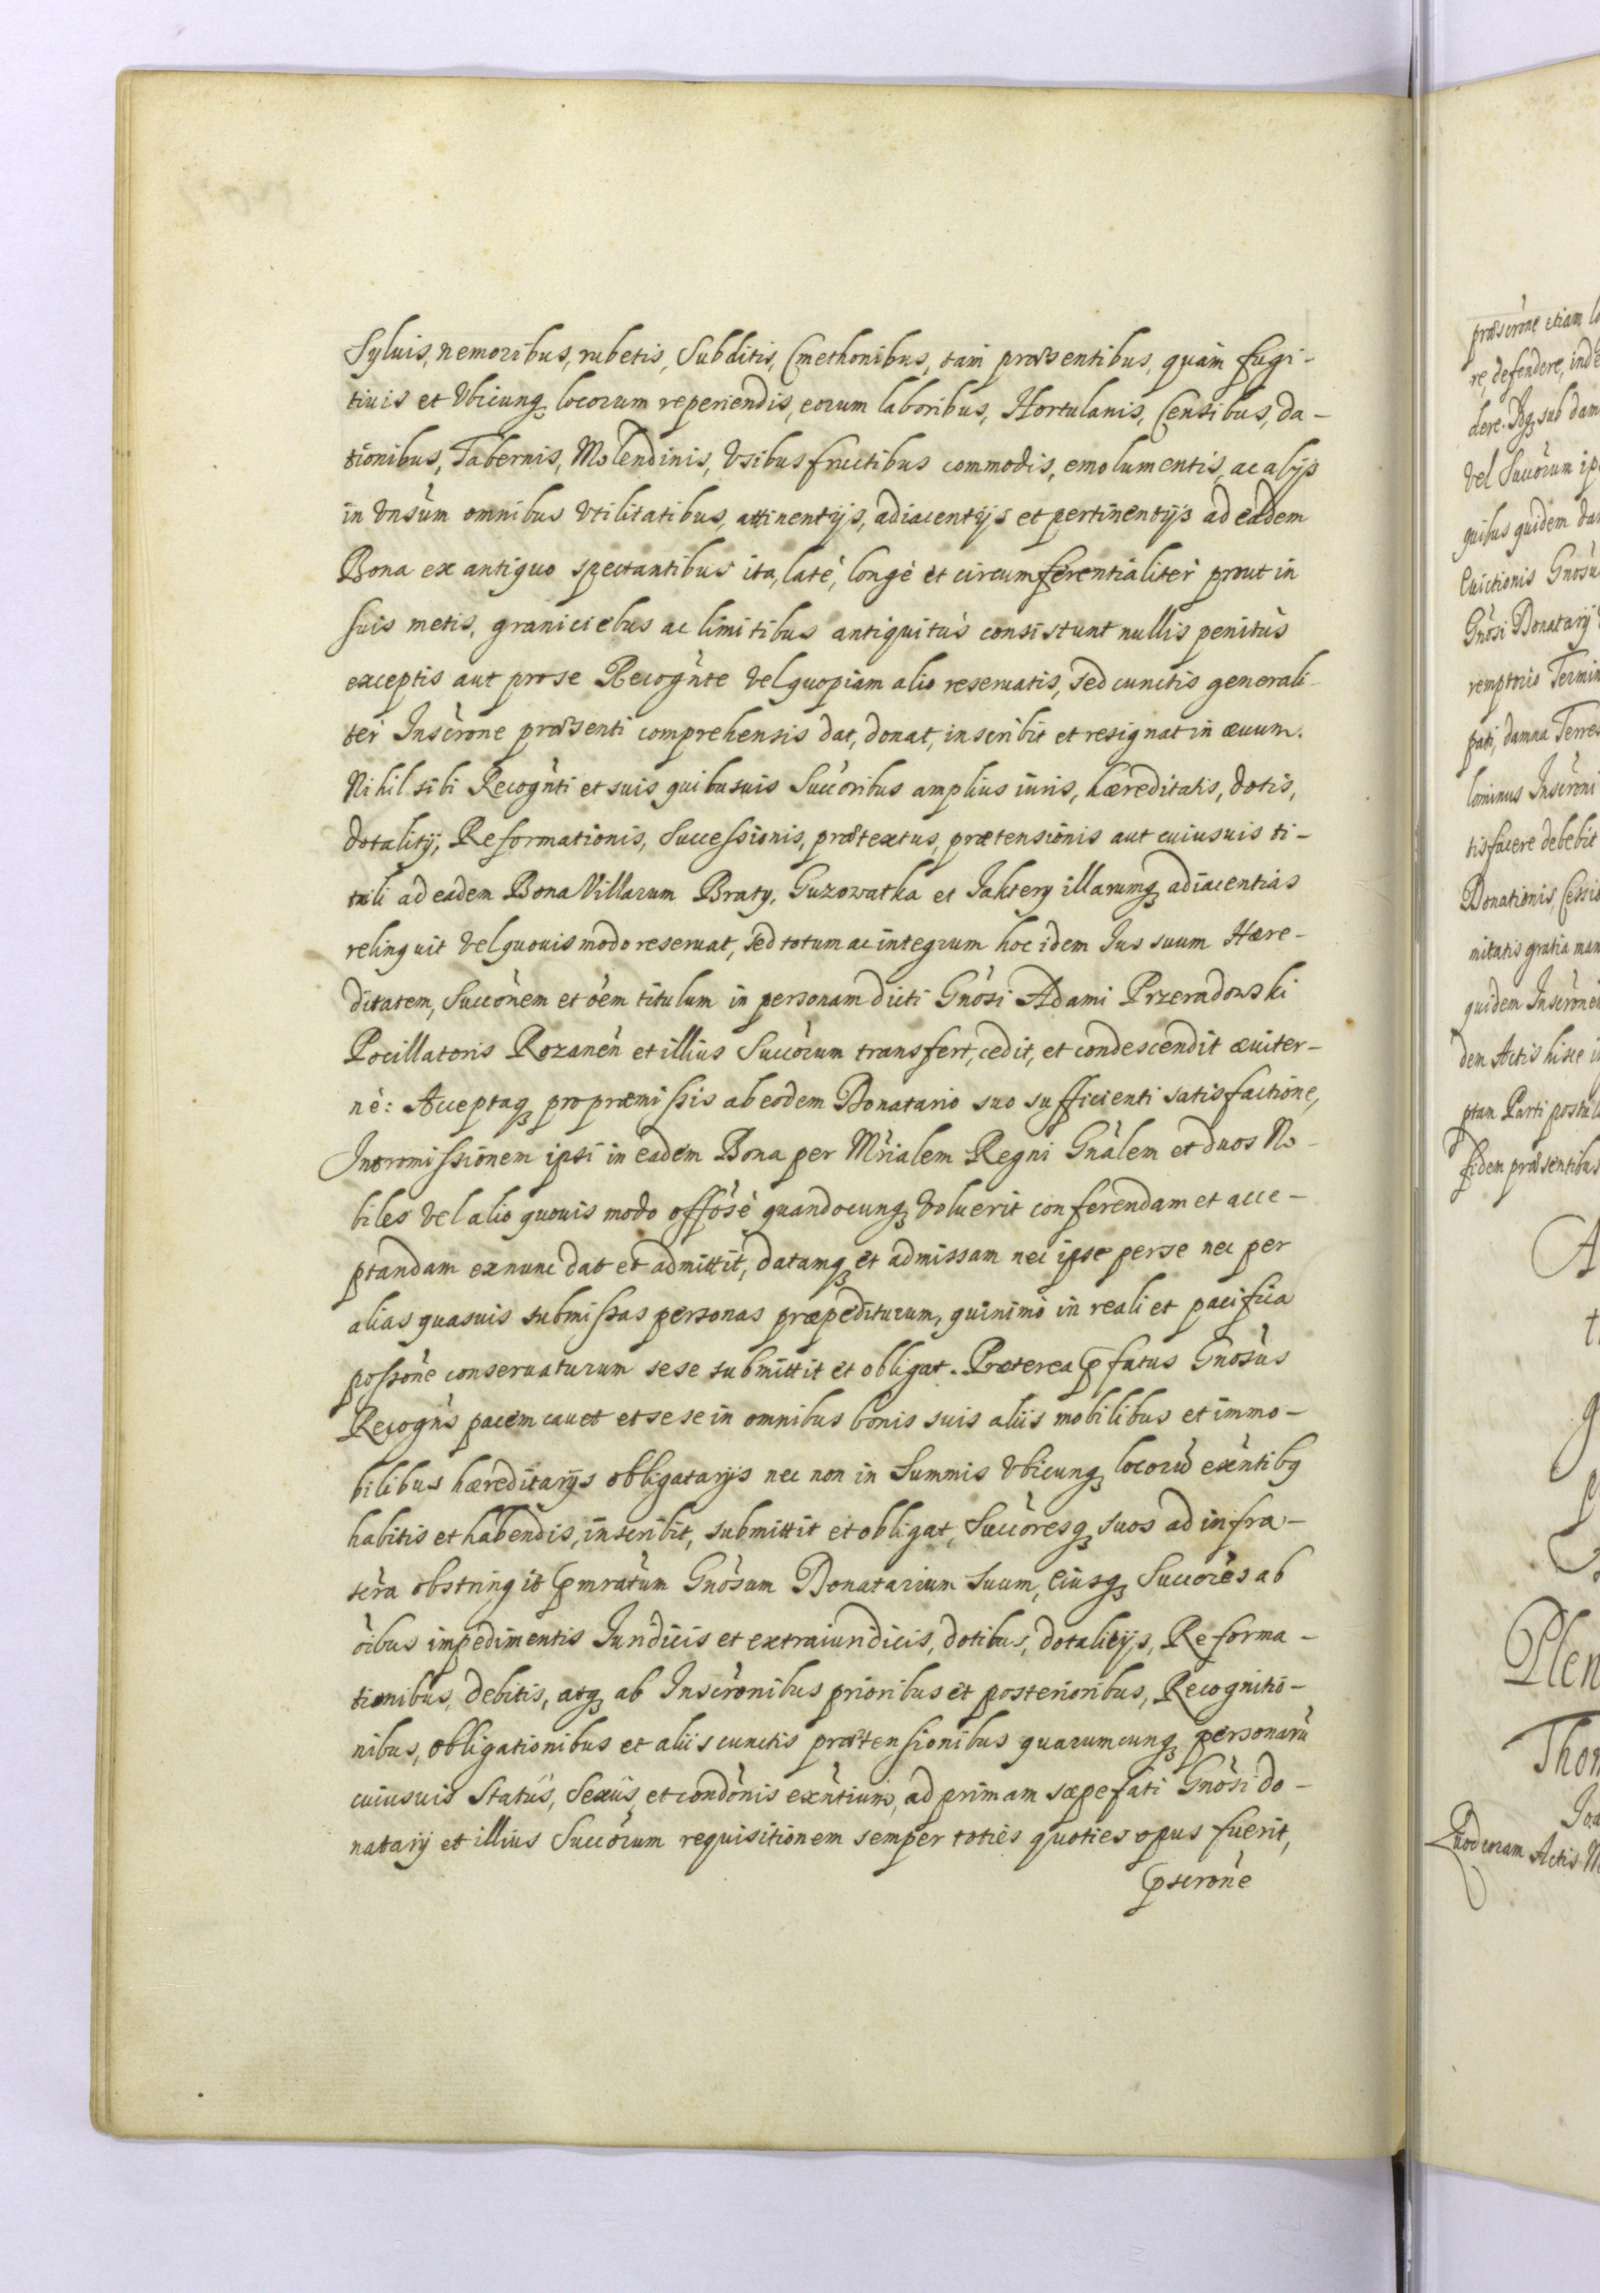 Syluis, nemoribus, rubetis, Subditis, Cmethonibus, tam præsentibus, quàm fugi-
tiuis et Vbicunq locorum reperiendis, eorum laboribus, Hortulanis, Censibus, da-
tionibus, Tabernis, Molendinis, Vsibus fructibus commodis, emolumentis, ac alijs
in Vnsùm omnibus Vtilitatibus, attinentijs, adiacentijs et pertinentijs ad eadem
Bona ex antiquo spectantibus ita, latè, longè et circumferentialiter prout in
suis metis, graniciebus ac limitibus antiquitùs consistunt nullis penitùs
exceptis aut pro se Recognte Vel quopiam alio reseruatis, sed cunctis generali-
ter Inscrone præsenti comprehensis dat, donat, inscribit et resignat in æuum.
Nihil sibi Recognti et suis quibusuis Succoribus amplius iuris, hæreditatis, dotis,
dotalitij, Reformationis, Successionis, prætextus, prætensionis aut cuiusuis ti-
tuli ad eadem Bona Villarum Braty, Guzowatka et Jaktery illarumq adiacentias
relinquit Vel quouis modo reseruat, sed totum ac integrum hoc idem Jus suum Hære-
ditatem, Succonem et oem titulum in personam dicti Gnosi Adami Przeradowski
Pocillatoris Rozanen et illius Succorum transfert, cedit, et condescendit æuiter-
nè: Acceptaq pro præmissis ab eodem Donatario suo sufficienti satisfactione,
Intromissionem ipsi in eadem Bona per Mrialem Regni Gnalem et duos No-
biles Vel alio quouis modo offosè quandocunq Voluerit conferendam et acce-
ptandam ex nunc dat et admittit, datamq et admissam nec ipse per se nec per
alias quasuis submissas personas præpediturum, quinimò in reali et pacifica
possone conseruaturum sese submittit et obligat. Præterea pfatus Gnosus
Recogns pacem cauet et sese in omnibus bonis suis aliis mobilibus et immo-
bilibus hæreditarijs obligatarijs nec non in Summis Vbicunq locorũ exntibq
habitis et habendis, inscribit, submittit et obligat, Succoresq suos ad infra-
scra obstringit pmratum Gnosum Donatarium suum, eiusq Succores ab
oibus impedimentis Juridicis et extraiuridicis, dotibus, dotalitijs, Reforma-
tionibus, debitis, atq ab Inscronibus prioribus et posterioribus, Recognitio-
nibus, obligationibus et aliis cunctis prætensionibus quarumcunq personarũ
cuiusuis Status, Sexus, et condonis exntium, ad primam sæpefati Gnosi do-
natarij et illius Succorum requisitionem semper toties quoties opus fuerit,
pscrone
præscrone etiam
re, defendere,
dere. Idq sub dam
Vel Succorum
quibus quidem
Euictionis Gnosu
Gnosi Donatarij
remptorio Termin
pati, damna Terres
Inscroni
tisfacere debebit
Donationis, Cessio
gratia
quidem Inscrone
dem Actis hisce
ptam Parti
fidem præsentibus
A
t
g
Plen
Thom
Joa
Quod coram Actis